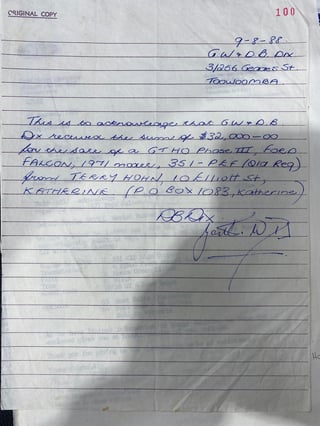 ORIGINAL COPY
100
9-8-88
G.W & D.B. Dix
3/256 George St.
TOOWOOMBA.
This is to acknowledge that G W & D.B.
Dix received the sum of $32,000-00
for the sale of a GTHO Phase III, FORD
FALCON, 1971 model, 351-PEF (Qld Reg)
from TERRY HOHN, 10 Elliott St,
KATHERINE (P.O BOX 1083, Katherine)
DB Dix